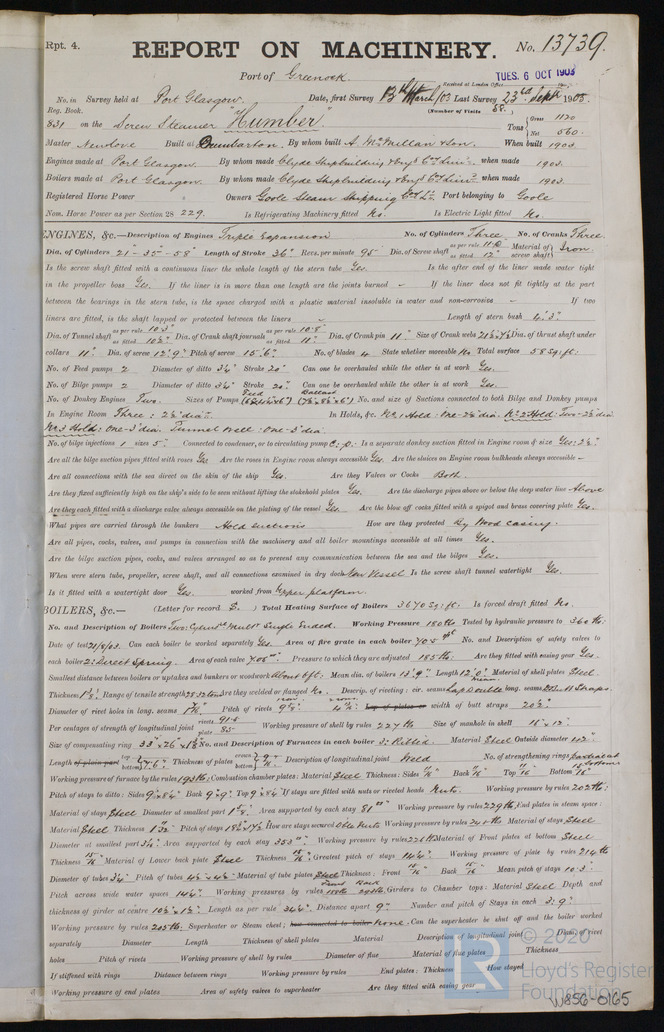 Rpt. 4. REPORT ON MACHINERY. No. 13739.
Port of Greenock Received at London Office TUES. 6 OCT 1903
No. in Survey held at Port Glasgow Date, first Survey 13th March/03 Last Survey 23rd Septr 1903
Reg. Book. (Number of Visits 58)
831 on the Screw Steamer "Humber" Tons Gross 1120 Net 560
Master Newlove Built at Dumbarton. By whom built A. McMillan & Son. When built 1903
Engines made at Port Glasgow. By whom made Clyde Shipbuilding & Engg Coy Limd when made 1903.
Boilers made at Port Glasgow. By whom made Clyde Shipbuilding & Engg Coy Limd when made 1903.
Registered Horse Power Owners Goole Steam Shipping Coy Ld Port belonging to Goole
Nom. Horse Power as per Section 28 229. Is Refrigerating Machinery fitted No. Is Electric Light fitted No.
ENGINES, &c.—Description of Engines Triple Expansion No. of Cylinders Three No. of Cranks Three
Dia. of Cylinders 21"-35"-58" Length of Stroke 36" Revs. per minute 95 Dia. of Screw shaft as per rule as fitted 12" Material of screw shaft Iron
Is the screw shaft fitted with a continuous liner the whole length of the stern tube Yes. Is the after end of the liner made water tight
in the propeller boss Yes. If the liner is in more than one length are the joints burned – If the liner does not fit tightly at the part
between the bearings in the stern tube, is the space charged with a plastic material insoluble in water and non-corrosive – If two
liners are fitted, is the shaft lapped or protected between the liners – Length of stern bush 4'.3"
Dia. of Tunnel shaft as per rule 10.3" as fitted 10½" Dia. of Crank shaft journals as per rule 10.8" as fitted 11" Dia. of Crank pin 11" Size of Crank webs Dia. of thrust shaft under
collars 11" Dia. of screw 12'.9" Pitch of screw 15'.6" No. of blades 4 State whether moveable No Total surface 58 sq: ft:
No. of Feed pumps 2 Diameter of ditto 3¼" Stroke 20" Can one be overhauled while the other is at work Yes.
No. of Bilge pumps 2 Diameter of ditto 3¼" Stroke 20" Can one be overhauled while the other is at work Yes.
No. of Donkey Engines Two. Sizes of Pumps Feed Ballast No. and size of Suctions connected to both Bilge and Donkey pumps
In Engine Room Three: 2½" dia. In Holds, &c. No. 1 Hold: One-2½" dia. No. 2 Hold: Two-2½" dia
No. 3 Hold: One-3" dia. Tunnel well: One-3" dia.
No. of bilge injections 1 sizes 5" Connected to condenser, or to circulating pump C: p: Is a separate donkey suction fitted in Engine room & size Yes: 2½".
Are all the bilge suction pipes fitted with roses Yes Are the roses in Engine room always accessible Yes. Are the sluices on Engine room bulkheads always accessible –
Are all connections with the sea direct on the skin of the ship Yes. Are they Valves or Cocks Both.
Are they fixed sufficiently high on the ship's side to be seen without lifting the stokehold plates Yes. Are the discharge pipes above or below the deep water line Above
Are they each fitted with a discharge valve always accessible on the plating of the vessel Yes. Are the blow off cocks fitted with a spigot and brass covering plate Yes.
What pipes are carried through the bunkers Hold suctions How are they protected By Wood casing.
Are all pipes, cocks, valves, and pumps in connection with the machinery and all boiler mountings accessible at all times Yes.
Are the bilge suction pipes, cocks, and valves arranged so as to prevent any communication between the sea and the bilges Yes.
When were stern tube, propeller, screw shaft, and all connections examined in dry dock New Vessel Is the screw shaft tunnel watertight Yes.
Is it fitted with a watertight door Yes. worked from Upper platform.
BOILERS, &c.— (Letter for record S.) Total Heating Surface of Boilers 3670 sq: ft: Is forced draft fitted No.
No. and Description of Boilers Two: Cylindl Multr Single Ended. Working Pressure 180 lbs Tested by hydraulic pressure to 360 lbs:
Date of test 21/8/03. Can each boiler be worked separately Yes. Area of fire grate in each boiler 70.5 sqft No. and Description of safety valves to
each boiler 2: Direct Spring. Area of each valve 7.05 Pressure to which they are adjusted 185 lbs: Are they fitted with easing gear Yes.
Smallest distance between boilers or uptakes and bunkers or woodwork About 6 ft: Mean dia. of boilers 13'.9" Length 12'.0" Material of shell plates Steel
Thickness 1⅛" Range of tensile strength 28:32 tons Are they welded or flanged No. Descrip. of riveting: cir. seams Lap Double long. seams D. Butt Straps.
Diameter of rivet holes in long. seams Pitch of rivets Lap of plates or width of butt straps 20½"
Per centages of strength of longitudinal joint rivets 91.8 plate 85 Working pressure of shell by rules 227 lbs Size of manhole in shell 16" x 12"
Size of compensating ring No. and Description of Furnaces in each boiler 3: Ribbed. Material Steel Outside diameter 42"
Length of plain part top bottom 7'.6" Thickness of plates crown bottom Description of longitudinal joint Weld No. of strengthening rings
Working pressure of furnace by the rules 193 lbs: Combustion chamber plates: Material Steel Thickness: Sides 11/16" Back Top 11/16" Bottom
Pitch of stays to ditto: Sides Back 9"x9" Top If stays are fitted with nuts or riveted heads Nuts. Working pressure by rules 202 lbs:
Material of stays Steel Diameter at smallest part Area supported by each stay 81 Working pressure by rules 229 lbs. End plates in steam space:
Material Steel Thickness Pitch of stays How are stays secured Dble Nuts Working pressure by rules Material of stays Steel
Diameter at smallest part 3¼" Area supported by each stay 333 Working pressure by rules Material of Front plates at bottom Steel
Thickness 15/16" Material of Lower back plate Steel Thickness 15/16" Greatest pitch of stays 14½" Working pressure of plate by rules 214 lbs
Diameter of tubes 3¼" Pitch of tubes Material of tube plates Steel Thickness: Front 15/16" Back Mean pitch of stays 10.3"
Pitch across wide water spaces 14½" Working pressures by rules Front Back Girders to Chamber tops: Material Steel Depth and
thickness of girder at centre Length as per rule Distance apart 9" Number and pitch of Stays in each 3: 9"
Working pressure by rules 205 lbs: Superheater or Steam chest; how connected to boiler None. Can the superheater be shut off and the boiler worked
separately Diameter Length Thickness of shell plates Material Description of longitudinal joint Diam. of rivet
holes Pitch of rivets Working pressure of shell by rules Diameter of flue Material of flue plates Thickness
If stiffened with rings Distance between rings Working pressure by rules End plates: Thickness How stayed
Working pressure of end plates Area of safety valves to superheater Are they fitted with easing gear
LR © 2020
Lloyd's Register
Foundation
W856-0165